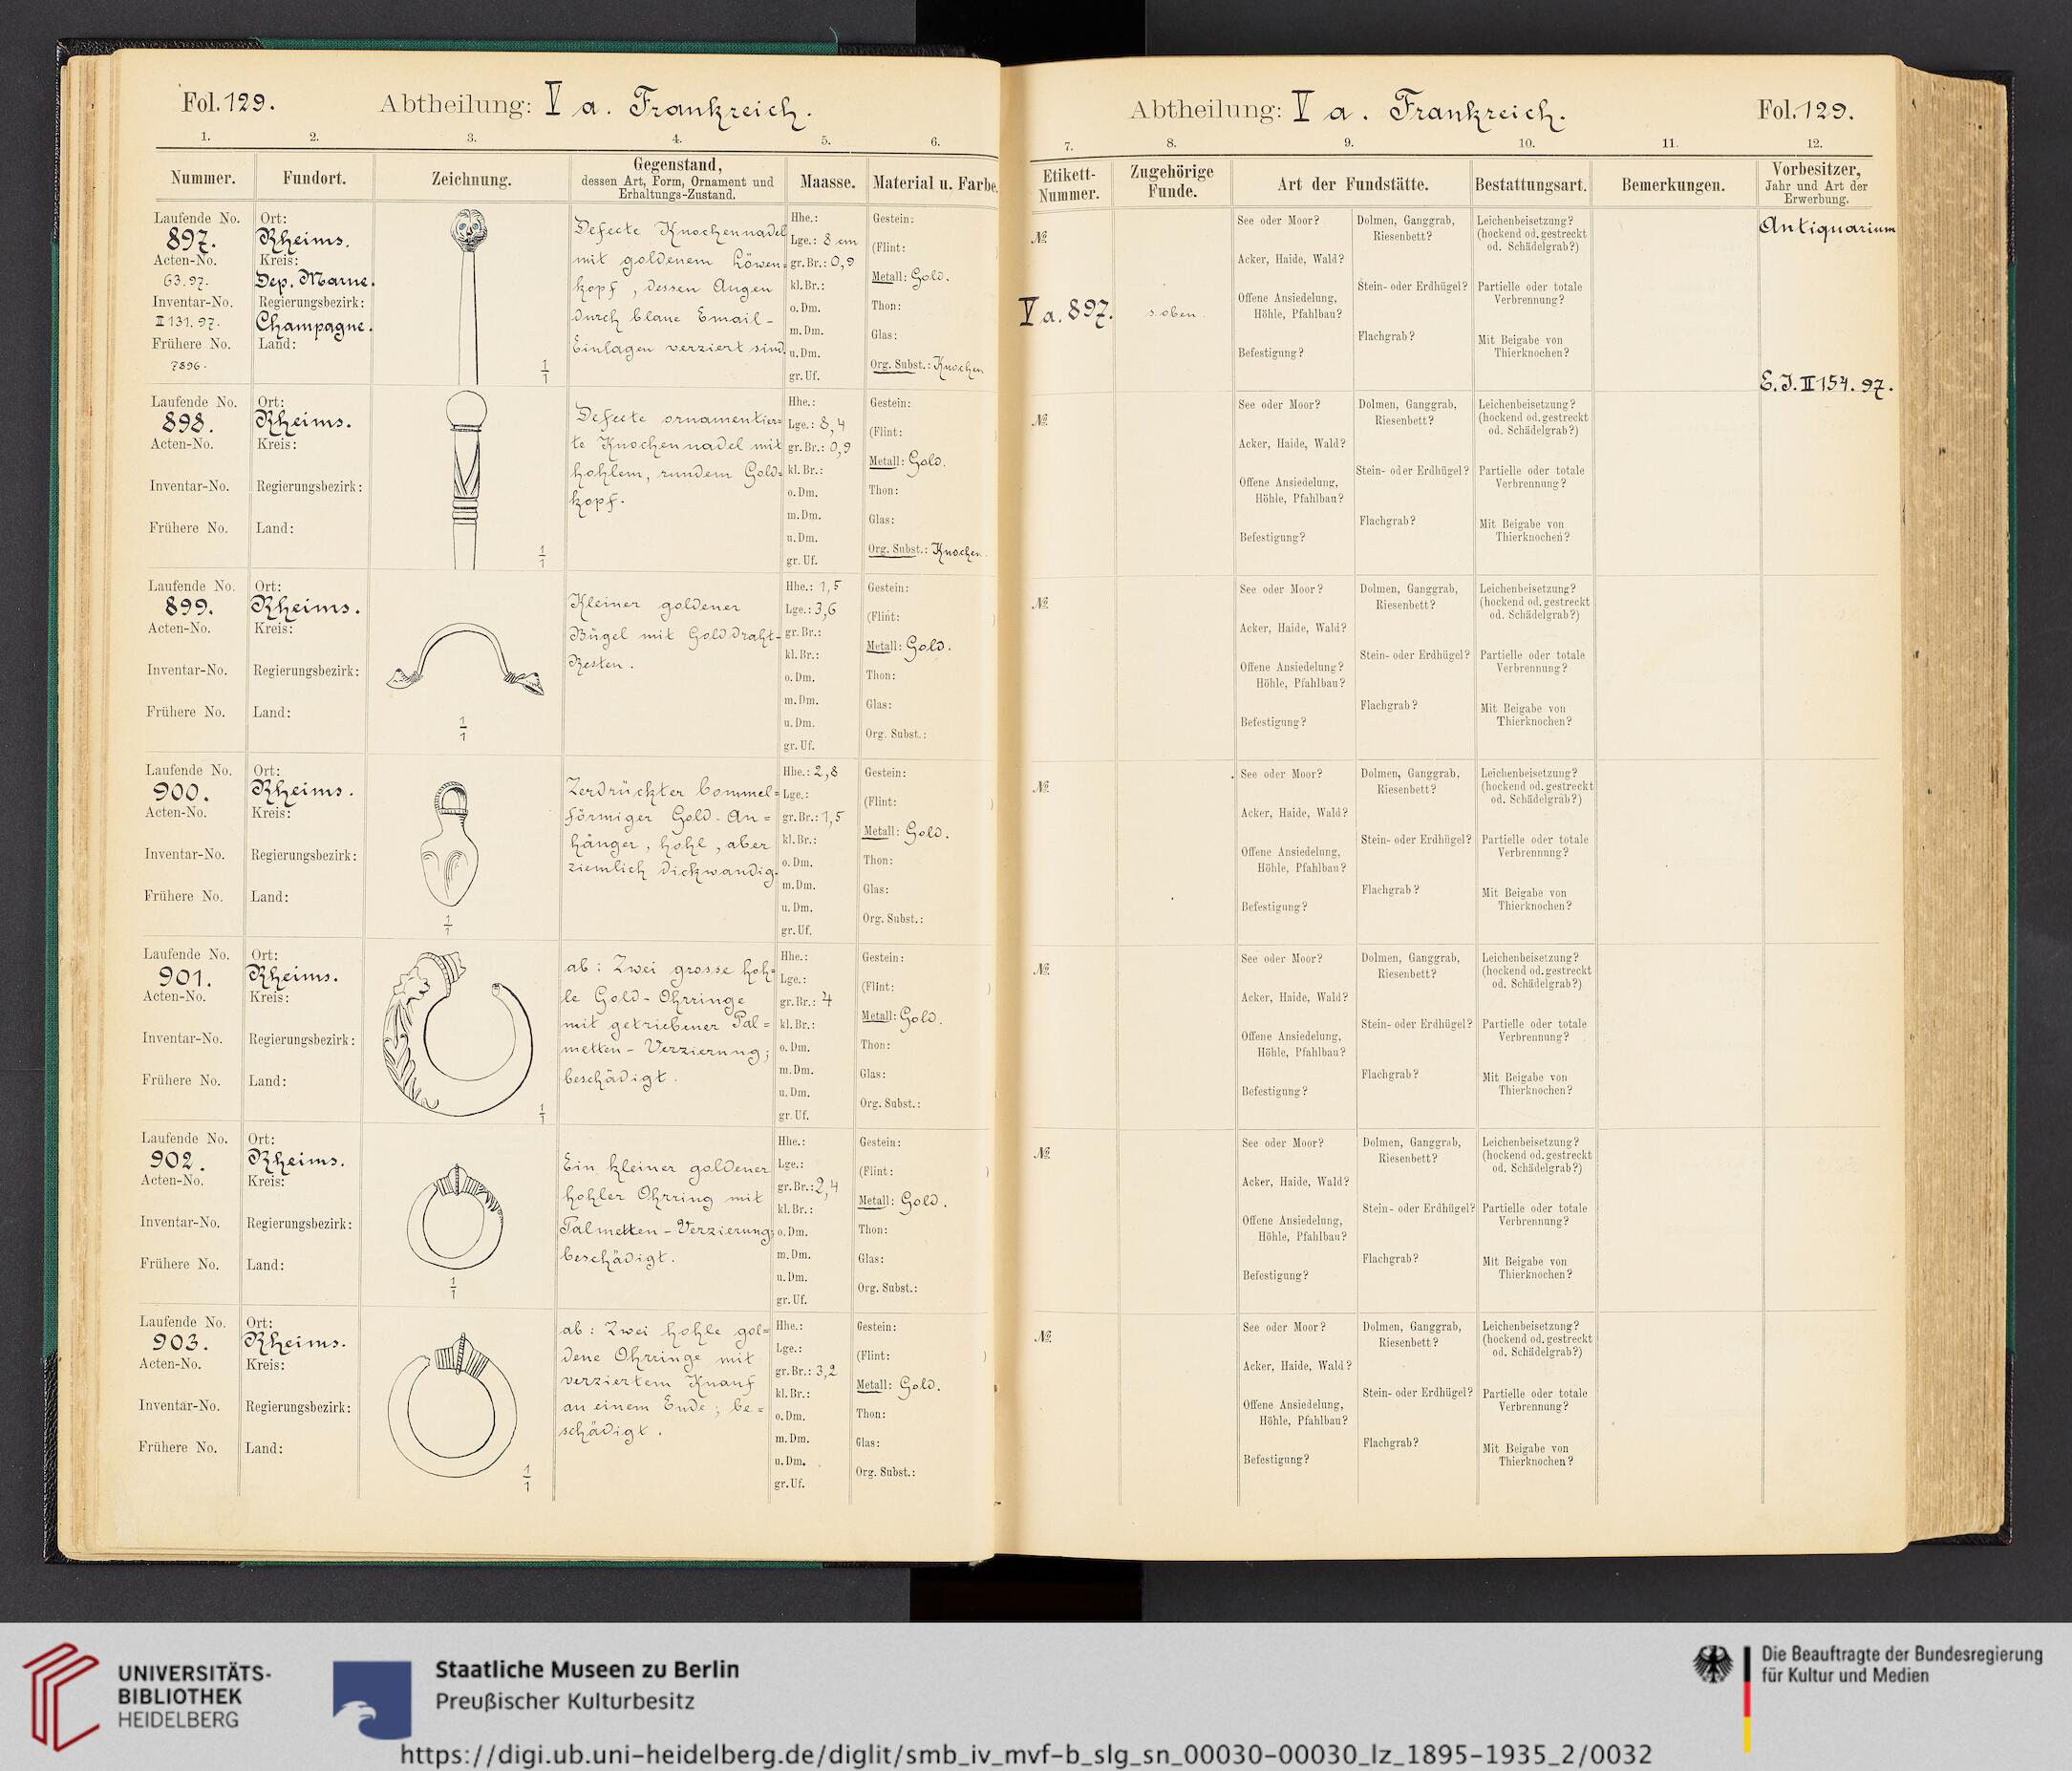 Fol. 129. Abtheilung: V a. Frankreich.
1. 2. 3. 4. 5. 6.
Nummer. Fundort. Zeichnung. Gegenstand, dessen Art, Form, Ornament und Erhaltungs-Zustand. Maasse. Material u. Farbe.
Laufende No. 897.
Acten-No. 63.97.
Inventar-No. II 131.97.
Frühere No. 7896.
Ort: Rheims.
Kreis: Dep. Marne.
Regierungsbezirk: Champagne.
Land:
1/1
Defecte Knochennadel
mit goldenem Löwen-
kopf, dessen Augen
durch blaue Email-
Einlagen verziert sind.
Hhe.:
Lge.: 8 cm
gr. Br.: 0,9
kl. Br.:
o. Dm.
m. Dm.
u. Dm.
gr. Uf.
Gestein:
(Flint:
Metall: Gold.
Thon:
Glas:
Org. Subst.: Knochen
Laufende No. 898.
Acten-No.
Inventar-No.
Frühere No.
Ort: Rheims.
Kreis:
Regierungsbezirk:
Land:
1/1
Defecte ornamentier=
te Knochennadel mit
hohlem, rundem Gold=
kopf.
Hhe.:
Lge.: 8,4
gr. Br.: 0,9
kl. Br.:
o. Dm.
m. Dm.
u. Dm.
gr. Uf.
Gestein:
(Flint:
Metall: Gold.
Thon:
Glas:
Org. Subst.: Knochen.
Laufende No. 899.
Acten-No.
Inventar-No.
Frühere No.
Ort: Rheims.
Kreis:
Regierungsbezirk:
Land:
1/1
Kleiner goldener
Bügel mit Golddraht-
Resten.
Hhe.: 1,5
Lge.: 3,6
gr. Br.:
kl. Br.:
o. Dm.
m. Dm.
u. Dm.
gr. Uf.
Gestein:
(Flint:
Metall: Gold.
Thon:
Glas:
Org. Subst.:
Laufende No. 900.
Acten-No.
Inventar-No.
Frühere No.
Ort: Rheims.
Kreis:
Regierungsbezirk:
Land:
1/1
Zerdrückter bommel=
förmiger Gold-An=
hänger, hohl, aber
ziemlich dickwandig.
Hhe.: 2,8
Lge.:
gr. Br.: 1,5
kl. Br.:
o. Dm.
m. Dm.
u. Dm.
gr. Uf.
Gestein:
(Flint:
Metall: Gold.
Thon:
Glas:
Org. Subst.:
Laufende No. 901.
Acten-No.
Inventar-No.
Frühere No.
Ort: Rheims.
Kreis:
Regierungsbezirk:
Land:
1/1
ab: Zwei grosse hoh=
le Gold-Ohrringe
mit getriebener Pal=
metten-Verzierung;
beschädigt.
Hhe.:
Lge.:
gr. Br.: 4
kl. Br.:
o. Dm.
m. Dm.
u. Dm.
gr. Uf.
Gestein:
(Flint: )
Metall: Gold.
Thon:
Glas:
Org. Subst.:
Laufende No. 902.
Acten-No.
Inventar-No.
Frühere No.
Ort: Rheims.
Kreis:
Regierungsbezirk:
Land:
1/1
Ein kleiner goldener
hohler Ohrring mit
Palmetten-Verzierung;
beschädigt.
Hhe.:
Lge.:
gr. Br.: 2,4
kl. Br.:
o. Dm.
m. Dm.
u. Dm.
gr. Uf.
Gestein:
(Flint: )
Metall: Gold.
Thon:
Glas:
Org. Subst.:
Laufende No. 903.
Acten-No.
Inventar-No.
Frühere No.
Ort: Rheims.
Kreis:
Regierungsbezirk:
Land:
1/1
ab: Zwei hohle gol=
dene Ohrringe mit
verziertem Knauf
an einem Ende; be=
schädigt.
Hhe.:
Lge.:
gr. Br.: 3,2
kl. Br.:
o. Dm.
m. Dm.
u. Dm.
gr. Uf.
Gestein:
(Flint: )
Metall: Gold.
Thon:
Glas:
Org. Subst.:
Abtheilung: V a. Frankreich. Fol. 129.
7. 8. 9. 10. 11. 12.
Etikett-Nummer. Zugehörige Funde. Art der Fundstätte. Bestattungsart. Bemerkungen. Vorbesitzer, Jahr und Art der Erwerbung.
№
V a. 897.
s. oben.
See oder Moor?
Acker, Haide, Wald?
Offene Ansiedelung,
Höhle, Pfahlbau?
Befestigung?
Dolmen, Ganggrab,
Riesenbett?
Stein- oder Erdhügel?
Flachgrab?
Leichenbeisetzung?
(hockend od. gestreckt
od. Schädelgrab?)
Partielle oder totale
Verbrennung?
Mit Beigabe von
Thierknochen?
Antiquarium
E.J. II 154. 97.
№
See oder Moor?
Acker, Haide, Wald?
Offene Ansiedelung,
Höhle, Pfahlbau?
Befestigung?
Dolmen, Ganggrab,
Riesenbett?
Stein- oder Erdhügel?
Flachgrab?
Leichenbeisetzung?
(hockend od. gestreckt
od. Schädelgrab?)
Partielle oder totale
Verbrennung?
Mit Beigabe von
Thierknochen?
№
See oder Moor?
Acker, Haide, Wald?
Offene Ansiedelung?
Höhle, Pfahlbau?
Befestigung?
Dolmen, Ganggrab,
Riesenbett?
Stein- oder Erdhügel?
Flachgrab?
Leichenbeisetzung?
(hockend od. gestreckt
od. Schädelgrab?)
Partielle oder totale
Verbrennung?
Mit Beigabe von
Thierknochen?
№
See oder Moor?
Acker, Haide, Wald?
Offene Ansiedelung,
Höhle, Pfahlbau?
Befestigung?
Dolmen, Ganggrab,
Riesenbett?
Stein- oder Erdhügel?
Flachgrab?
Leichenbeisetzung?
(hockend od. gestreckt
od. Schädelgrab?)
Partielle oder totale
Verbrennung?
Mit Beigabe von
Thierknochen?
№
See oder Moor?
Acker, Haide, Wald?
Offene Ansiedelung,
Höhle, Pfahlbau?
Befestigung?
Dolmen, Ganggrab,
Riesenbett?
Stein- oder Erdhügel?
Flachgrab?
Leichenbeisetzung?
(hockend od. gestreckt
od. Schädelgrab?)
Partielle oder totale
Verbrennung?
Mit Beigabe von
Thierknochen?
№
See oder Moor?
Acker, Haide, Wald?
Offene Ansiedelung,
Höhle, Pfahlbau?
Befestigung?
Dolmen, Ganggrab,
Riesenbett?
Stein- oder Erdhügel?
Flachgrab?
Leichenbeisetzung?
(hockend od. gestreckt
od. Schädelgrab?)
Partielle oder totale
Verbrennung?
Mit Beigabe von
Thierknochen?
№
See oder Moor?
Acker, Haide, Wald?
Offene Ansiedelung,
Höhle, Pfahlbau?
Befestigung?
Dolmen, Ganggrab,
Riesenbett?
Stein- oder Erdhügel?
Flachgrab?
Leichenbeisetzung?
(hockend od. gestreckt
od. Schädelgrab?)
Partielle oder totale
Verbrennung?
Mit Beigabe von
Thierknochen?
UNIVERSITÄTS-
BIBLIOTHEK
HEIDELBERG
Staatliche Museen zu Berlin
Preußischer Kulturbesitz
Die Beauftragte der Bundesregierung
für Kultur und Medien
https://digi.ub.uni-heidelberg.de/diglit/smb_iv_mvf-b_slg_sn_00030-00030_lz_1895-1935_2/0032